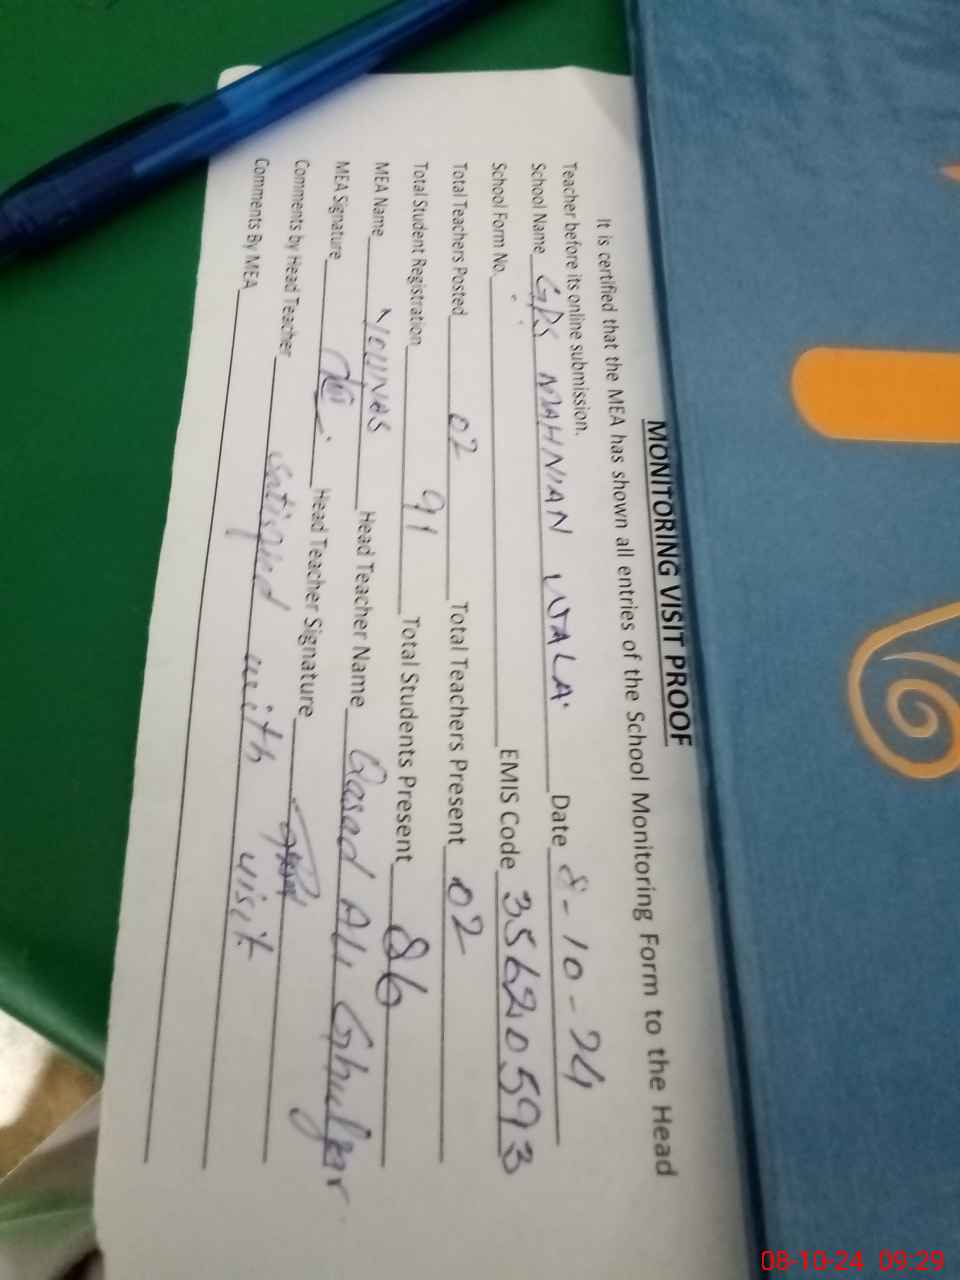 MONITORING VISIT PROOF
It is certified that the MEA has shown all entries of the School Monitoring Form to the Head
Teacher before its online submission.
School Name GPS MAHNIAN WALA Date 8-10-24
School Form No. EMIS Code 35620593
Total Teachers Posted 02 Total Teachers Present 02
Total Student Registration 91 Total Students Present 86
MEA Name YOUNAS Head Teacher Name Qasad Ali
MEA Signature Head Teacher Signature
Comments by Head Teacher Satisfied with visit
Comments By MEA
08-10-24 09:29